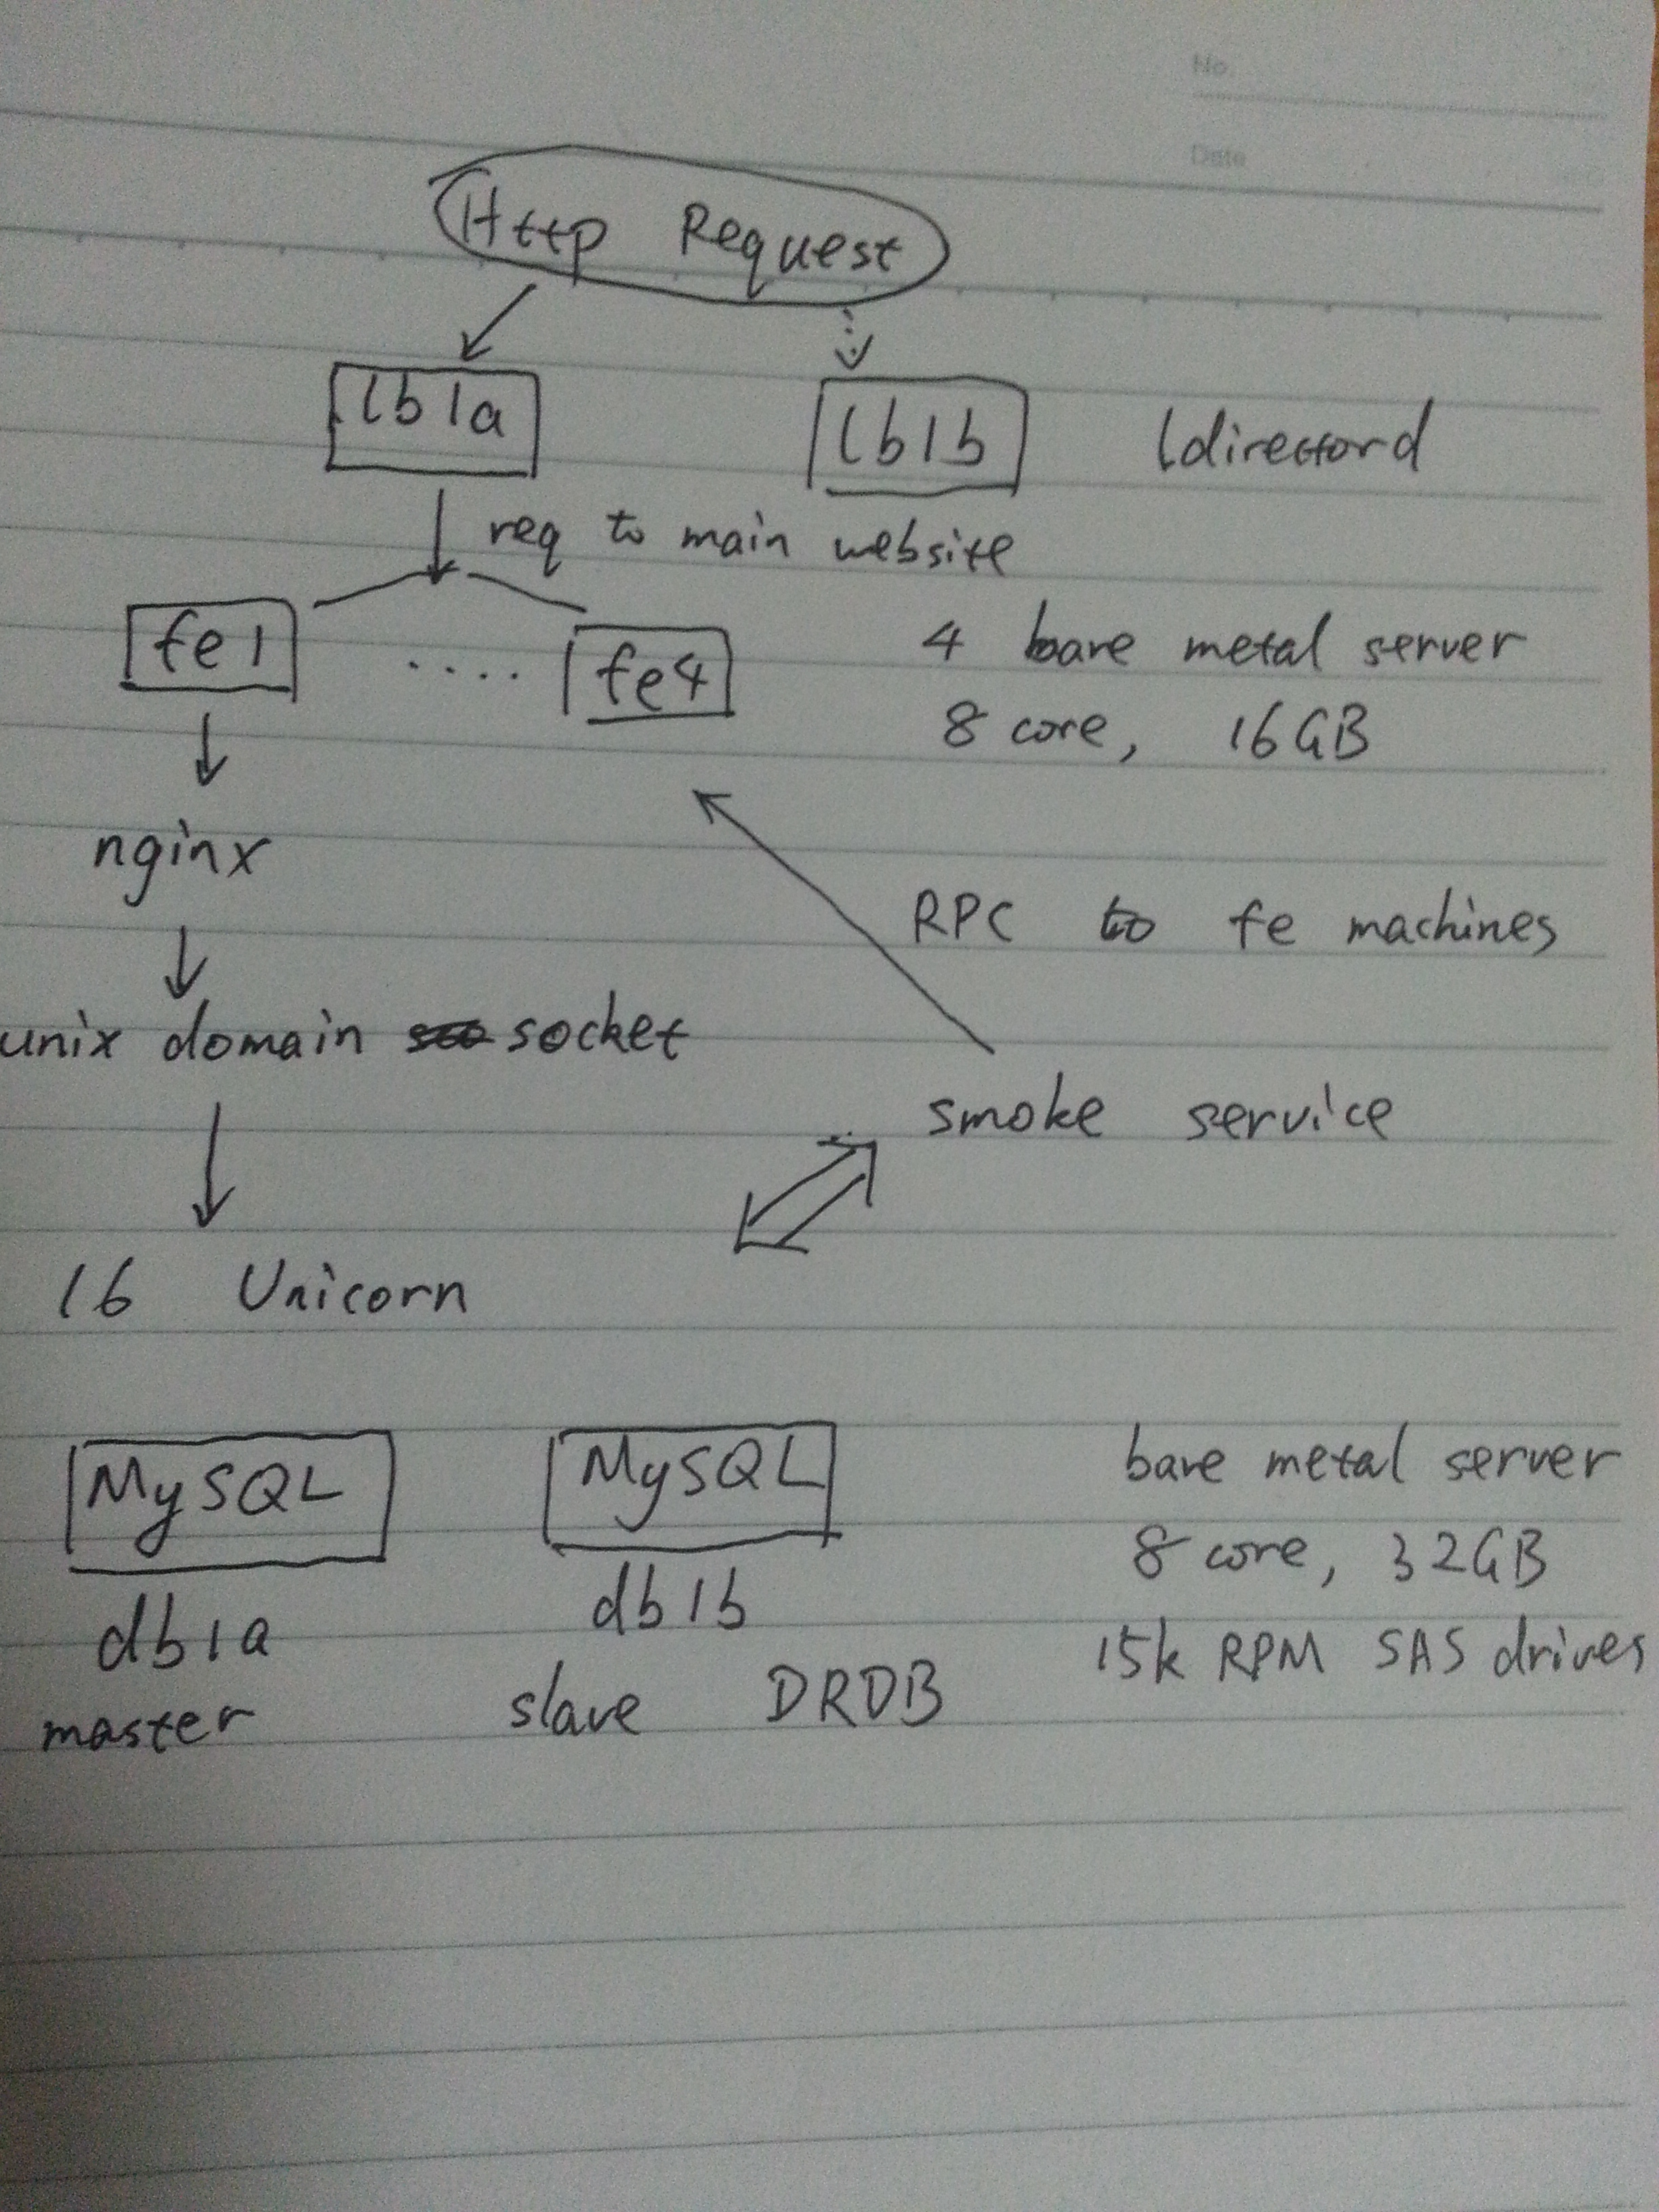 No.
Date
Http Request
lb1a
lb1b
ldirectord
req to main website
fe1
....
fe4
4 bare metal server
8 core, 16GB
nginx
RPC to fe machines
unix domain socket
smoke service
16 Unicorn
MySQL
MySQL
bare metal server
db1a
db1b
8 core, 32GB
master
slave DRDB
15k RPM SAS drives